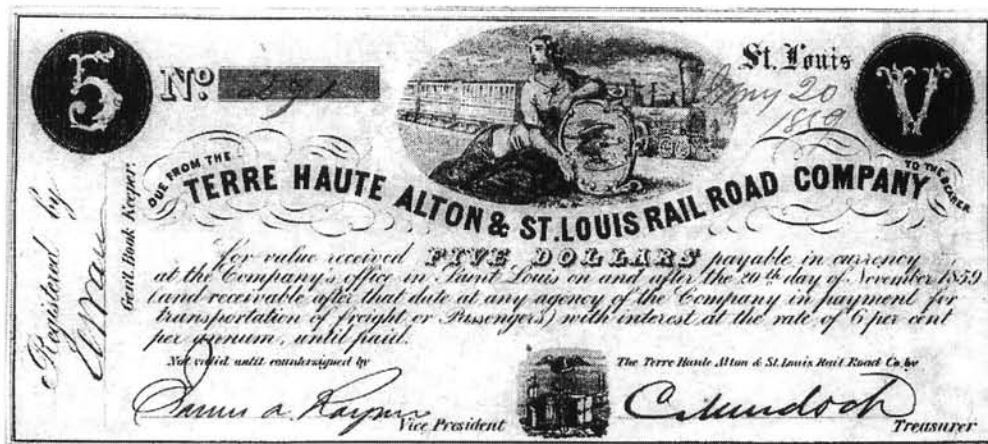 5
No. 291
St. Louis
May 20
1859
V
DUE FROM THE
TERRE HAUTE ALTON & ST. LOUIS RAIL ROAD COMPANY
TO THE BEARER
For value received FIVE DOLLARS payable in currency
at the Company's office in Saint Louis on and after the 20th day of November 1859
(and receivable after that date at any agency of the Company in payment for
transportation of freight or Passengers) with interest at the rate of 6 per cent
per annum, until paid.
Registered by
Genl. Book Keeper.
Not valid until countersigned by
Vice President
The Terre Haute Alton & St. Louis Rail Road Co. by
C. Murdoch
Treasurer